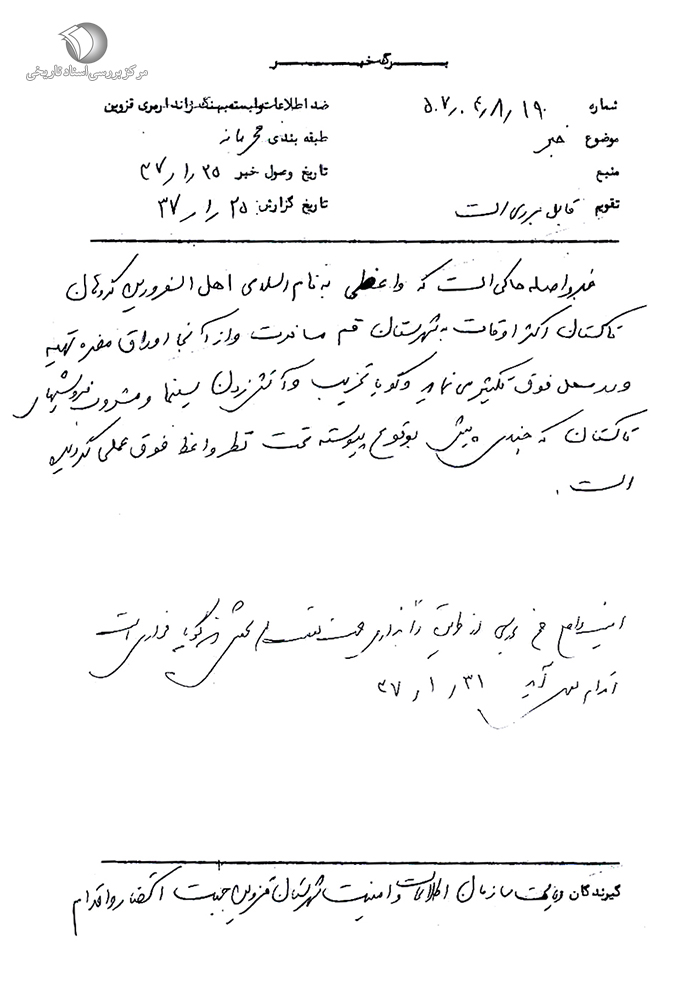 مرکز بررسی اسناد تاریخی
برگ خبر
شماره ۵۰۷٫۰۴٫۸٫۱۹۰ ضد اطلاعات وابسته بهنگ ژاندارمری قزوین
موضوع خبر طبقه بندی محرمانه
منبع تاریخ وصول خبر ۳۷٫۱٫۲۵
تقویم قابل بررسی است تاریخ گزارش: ۳۷٫۱٫۲۵
خبر واصله حاکی است که واعظی به نام اسلامی اهل اسفرورین
تاکستان اکثر اوقات به شهرستان قم مسافرت و از آنجا اوراق مضره تهیه
و در محل فوق تکثیر می نماید و گویا تخریب و آتش زدن سینما و مشروب فروشیهای
تاکستان که چندی پیش بوقوع پیوسته تحت نظر واعظ فوق عملی گردیده
است.
از طریق ژاندارمری گویا فراری است
اقدام بعمل آید ۳۷٫۱٫۳۱
گیرندگان ریاست سازمان اطلاعات و امنیت شهرستان قزوین جهت استحضار و اقدام